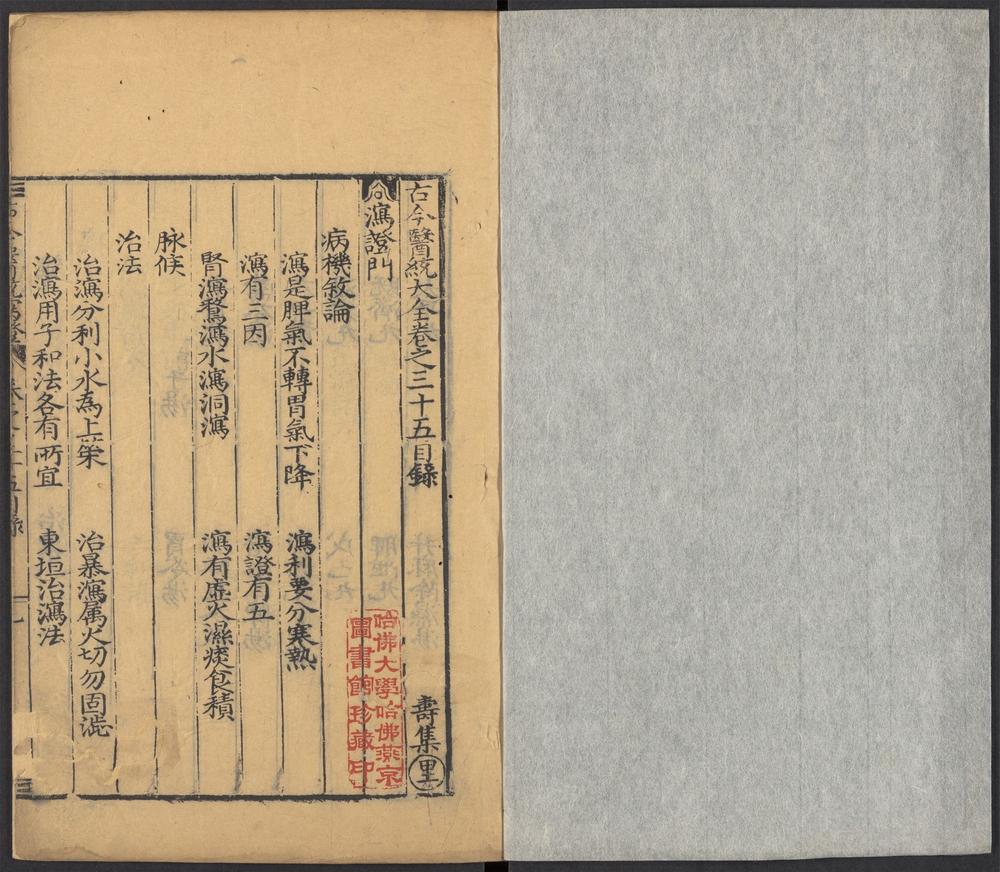 古今醫統大全卷之三十五目錄　壽集 里
㕣瀉證門
病機敘論
瀉是脾氣不轉胃氣下降　瀉利要分寒熱
瀉有三因　瀉證有五
腎瀉鶩瀉水瀉洞瀉　瀉有虛火濕痰食積
脉候
治法
治瀉分利小水為上策　治暴瀉属火切勿固澁
治瀉用子和法各有所宜　東垣治瀉法
哈佛大學哈佛燕京
圖書館珍藏印